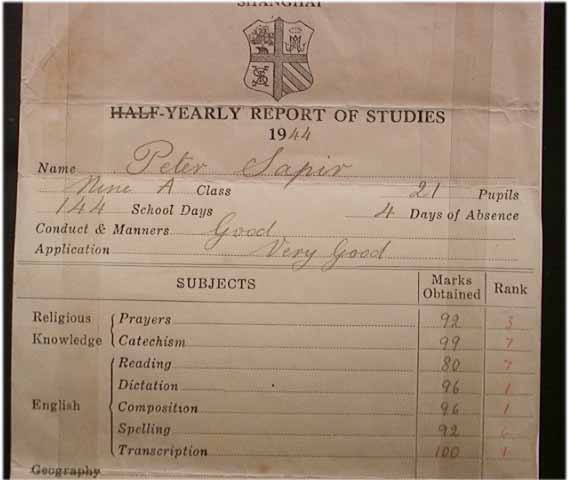 SHANGHAI
HALF-YEARLY REPORT OF STUDIES
1944
Name Peter Sapir
Nine A Class 21 Pupils
144 School Days 4 Days of Absence
Conduct & Manners Good
Application Very Good
SUBJECTS Marks Obtained Rank
Religious Knowledge Prayers 92 3
Catechism 99 7
English Reading 80 7
Dictation 96 1
Composition 96 1
Spelling 92
Transcription 100 1
Geography